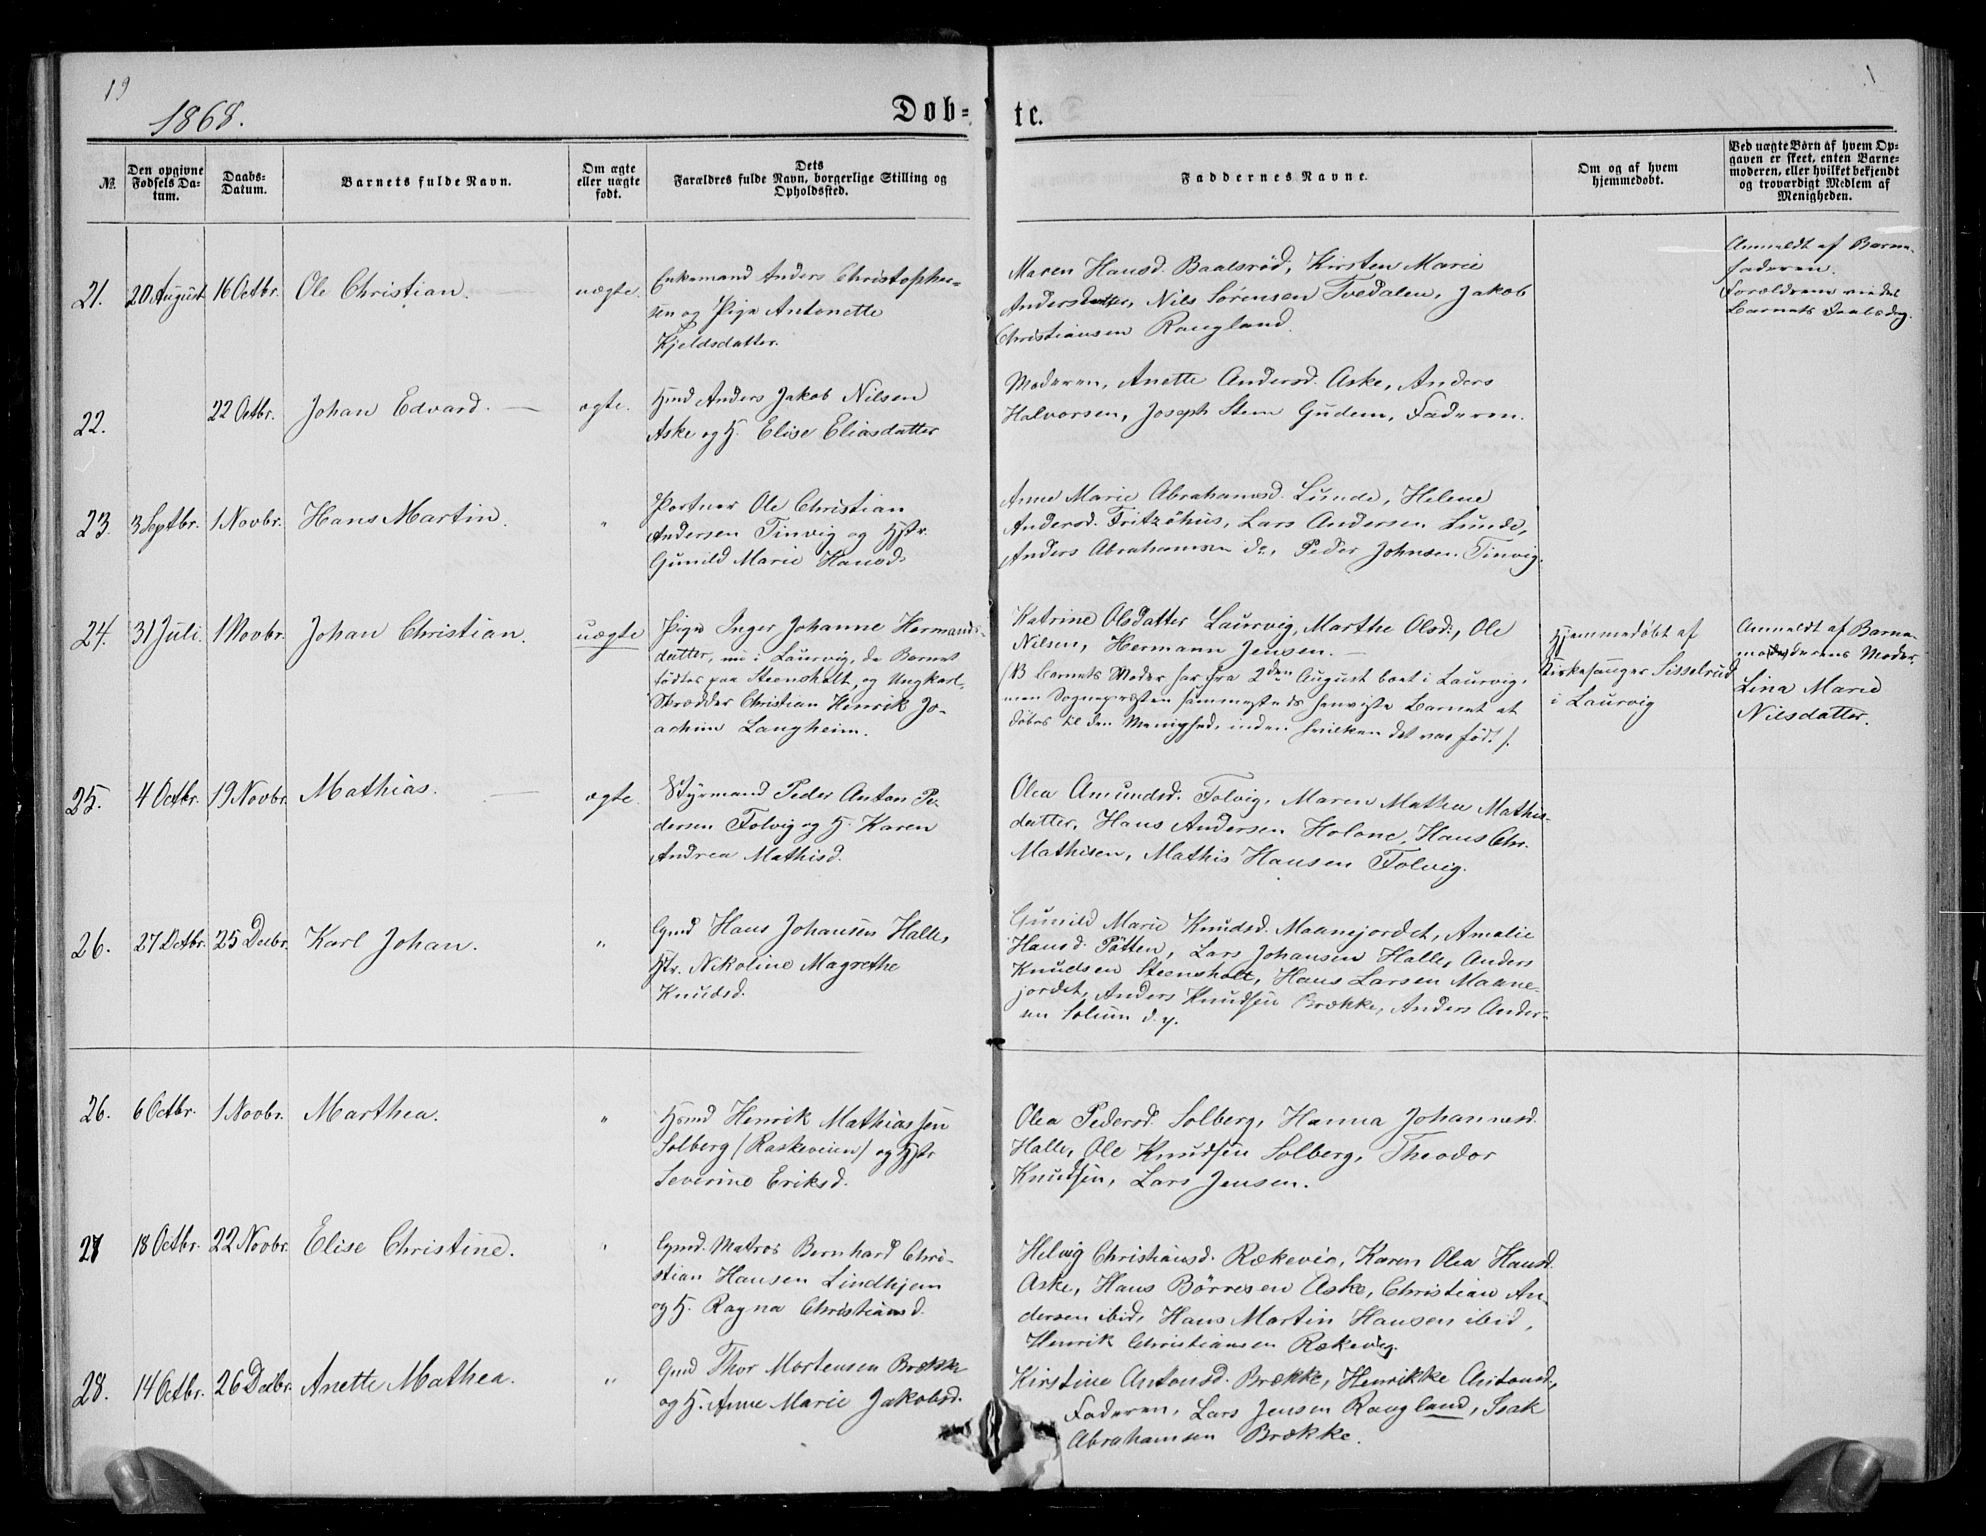 19
1868.
Døb=
te.
No.
Den opgivne
Fødsels Da-
tum.
Daabs-
Datum.
Barnets fulde Navn.
Om ægte
eller uægte
født.
Dets
Forældres fulde Navn, borgerlige Stilling og
Opholdssted.
Faddernes Navne.
Om og af hvem
hjemmedøbt.
Ved uægte Børn af hvem Op-
gaven er skeet, enten Barne-
moderen, eller hvilket bekjendt
og troværdigt Medlem af
Menigheden.
21.
20 August
16 Octbr.
Ole Christian.
uægte.
Enkemand Anders Christopher-
sen og Pige Antonette
Kjeldsdatter.
Maren Hansd. Baalsrød, Kirsten Marie
Andersdatter, Nils Sørensen Tvedalen, Jakob
Christiansen Rougland.
Anmeldt af Barne-
faderen.
Forældrene viedes
Barnets Daabsdag.
22.
22 Octbr.
Johan Edvard.
ægte.
Hmd Anders Jakob Nilsen
Aske og H. Elise Eliasdatter
Moderen, Anette Andersd. Aske, Anders
Halvorsen, Joseph Steen Gudem, Faderen.
23.
3 Septbr.
1 Novbr.
Hans Martin.
"
Portner Ole Christian
Andersen Tinvig og Hstr.
Gunild Marie Hansd.
Anne Marie Abrahamsd. Lunde, Helene
Andersd. Fritzöhus, Lars Andersen Lunde,
Anders Abrahamsen do, Peder Johnsen Tinvig.
24.
31 Juli.
1 Novbr.
Johan Christian.
uægte
Pige Inger Johanne Hermands-
datter, nu i Laurvig, da Barnet
fødtes paa Steensholt, og Ungkarl,
Skrædder Christian Henrik Jo-
achim Langheim.
Katrine Olsdatter Laurvig, Marthe Olsd., Ole
Nilsen, Hermann Jensen. —
/NB Barnets Moder har fra 2den August boet i Laurvig,
men Sognepræsten sammesteds henviste Barnet at
døbes til den Menighed, inden hvilken det var født./.
Hjemmedøbt af
Kirkesanger Sisselrud
i Laurvig
Anmeldt af Barne-
moderens Moder
Lina Marie
Nilsdatter.
25.
4 Octbr.
19 Novbr.
Mathias.
ægte.
Styrmand Peder Anton Pe-
dersen Folvig og H. Karen
Andrea Mathisd.
Olea Amundsd. Folvig, Maren Mathea Mathis-
datter, Hans Andersen Holane, Hans Chr.
Mathisen, Mathis Hansen Folvig.
26.
27 Octbr.
25 Decbr.
Karl Johan.
"
Gmd Hans Johansen Halle,
Hstr. Nikoline Magrethe
Knudsd.
Gunild Marie Knudsd. Maanejordet, Amalie
Hansd. Pøtten, Lars Johansen Halle, Anders
Knudsen Steensholt, Hans Larsen Maane-
jordet, Anders Knudsen Brække, Anders Ander-
sen Solum d.y.
26.
6 Octbr.
1 Novbr.
Marthea.
"
Hsmd Henrik Mathiassen
Solberg (Raskeveien) og Hstr
Severine Eriksd.
Olea Pedersd. Solberg, Hanna Johannesd.
Halle, Ole Knudsen Solberg, Theodor
Knudsen, Lars Jensen.
27
18 Octbr.
22 Novbr.
Elise Christine.
"
Gmd. Matros Bernhard Chri-
stian Hansen Lindhjem
og H. Ragna Christiansd.
Helvig Christiansd. Rækevig, Karen Olea Hansd.
Aske, Hans Børresen Aske, Christian An-
dersen ibid, Hans Martin Hansen ibid,
Henrik Christiansen Rækevig.
28.
14 Octbr.
26 Decbr.
Anette Mathea.
"
Gmd Thor Mortensen Brække
og H. Anne Marie Jakobsd.
Kirstine Antonsd. Brække, Henrikke Antonsd.,
Faderen, Lars Jensen Rougland, Isak
Abrahamsen Brække.